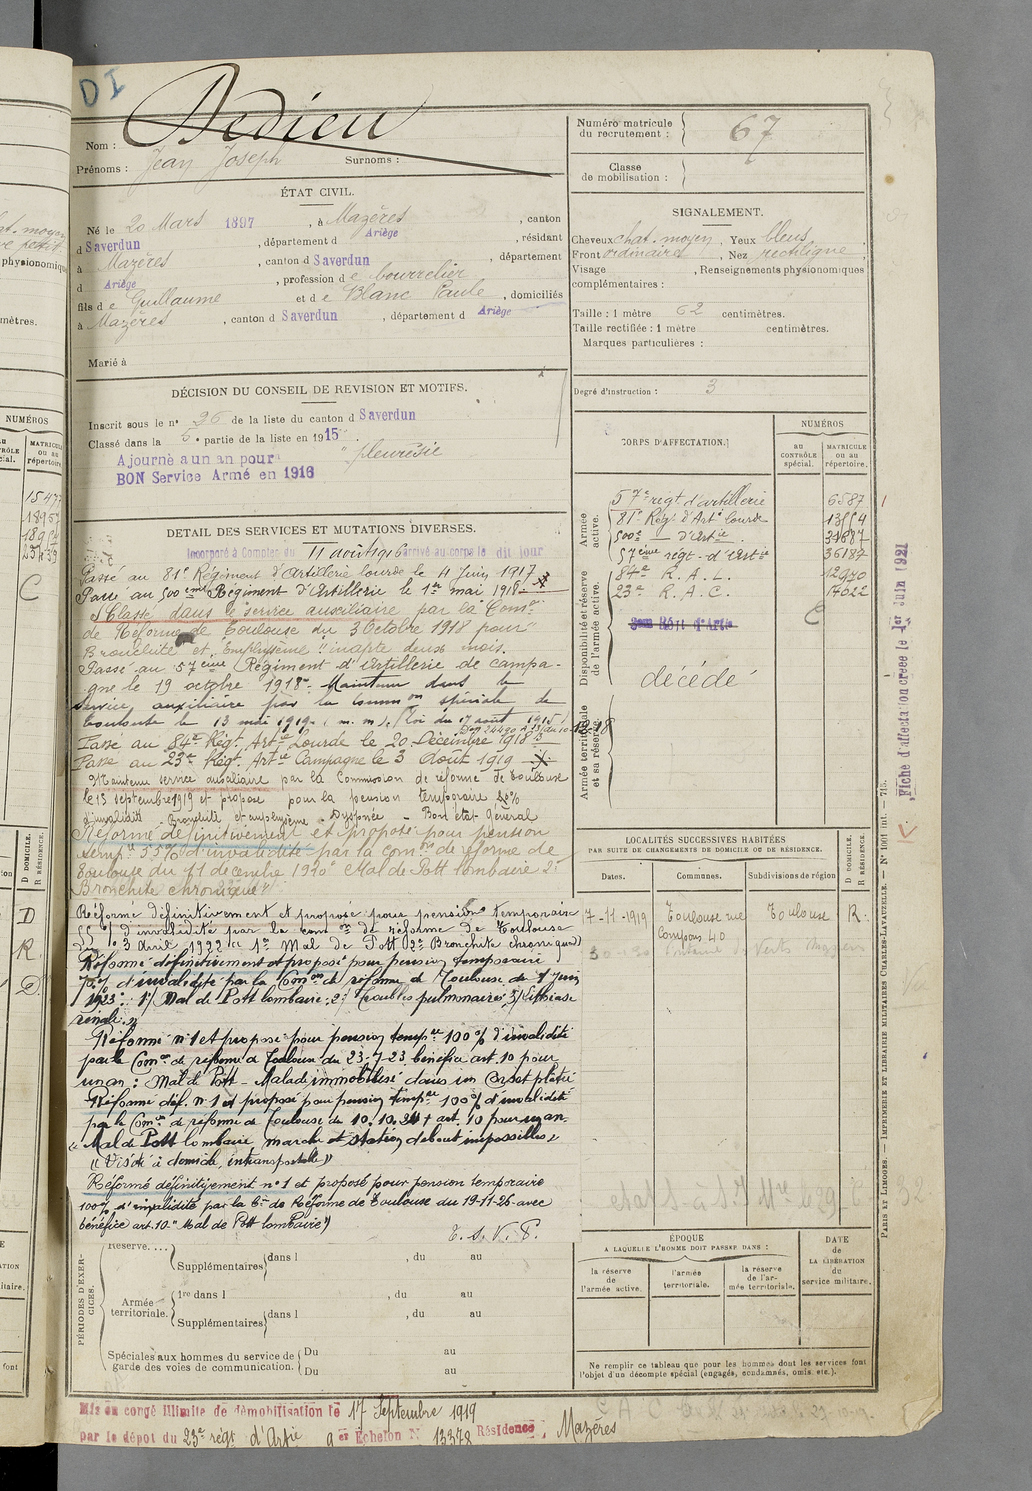 DI
Nom : Dedieu
Prénoms : Jean Joseph Surnoms :
Numéro matricule
du recrutement : 67
Classe
de mobilisation :
ÉTAT CIVIL.
Né le 20 Mars 1897 , à Mazères , canton
d Saverdun , département d Ariège , résidant
à Mazères , canton d Saverdun , département
d Ariège , profession de bourrelier
fils de Guillaume et de Blanc Paule , domiciliés
à Mazères , canton d Saverdun , département d Ariège
Marié à
SIGNALEMENT.
Cheveux chat. moyen , Yeux bleus ,
Front ordinaire , Nez rectiligne ,
Visage , Renseignements physionomiques
complémentaires :
Taille : 1 mètre 62 centimètres.
Taille rectifiée : 1 mètre centimètres.
Marques particulières :
Degré d'instruction : 3
DÉCISION DU CONSEIL DE REVISION ET MOTIFS.
Inscrit sous le n° 26 de la liste du canton d Saverdun
Classé dans la 5e partie de la liste en 1915 .
Ajourné à un an pour "pleurésie
BON Service Armé en 1916
CORPS D'AFFECTATION.
NUMÉROS
au
CONTRÔLE
spécial.
MATRICULE
ou au
répertoire.
Armée
active.
57e regt d'artillerie 6587
81e Rég. d'Arte lourde 13554
500e _ d'Artie . 31687
57ème régt. d'Artie 36187
Disponibilité et réserve
de l'armée active.
84e R. A. L. 12970
23e R. A. C. 17622
C
décédé
Armée territoriale
et sa réserve.
DETAIL DES SERVICES ET MUTATIONS DIVERSES.
Incorporé à Compter du 11 août 1916 arrivé au corps le dit jour
Passé au 81e Régiment d'Artillerie lourde le 4 Juin 1917
Passé au 500eme Régiment d'Artillerie le 1er mai 1918
Classé dans le service auxiliaire par la Comon
de Réforme de Toulouse du 3 Octobre 1918 pour
Bronchite et Emphysème "inapte deux mois.
Passé au 57ème Régiment d'Artillerie de campa-
gne le 19 octobre 1918. Maintenu dans le
service auxiliaire par la common spéciale de
Toulouse le 13 mai 1919 (n. m. s.) (loi du 17 août 1915)
Passé au 84e Régt. Artie Lourde le 20 Décembre 1918
Passé au 23e Régt. Artie Campagne le 3 Août 1919
Maintenu service auxiliaire par la Commission de réforme de Toulouse
le 13 septembre 1919 et proposé pour la pension temporaire
d'invalidité - Bronchite et emphysème - Dyspnée - Bon état général
Réformé définitivement et proposé pour pension
tempre 55% d'invalidité par la Comon de réforme de
Toulouse du 11 décembre 1920 Mal de Pott lombaire 2°
Bronchite chronique
Réformé définitivement et proposé pour pension temporaire
55% d'invalidité par la comon de réforme de Toulouse
du 3 Avril 1922 1° Mal de Pott 2° Bronchite chronique
Réformé définitivement et proposé pour pension temporaire
70% d'invalidité par la Comon de réforme de Toulouse du 1er Juin
1923 : 1°/ Mal de Pott lombaire ; 2°/ troubles pulmonaires ; 3°/ lithiase
rénale.
Réformé n° 1 et proposé pour pension tempre 100% d'invalidité
par la Comon de réforme de Toulouse du 23-7-23 bénéfice art. 10 pour
un an : Mal de Pott - Malade immobilisé dans un corset plâtré
Réformé déf. n° 1 et proposé pour pension tempre 100% d'invalidité
par la Comon de réforme de Toulouse du 10.10.24 + art. 10 pour un an.
"Mal de Pott lombaire, marche et station debout impossibles"
"(Visité à domicile, intransportable)"
Réformé définitivement n° 1 et proposé pour pension temporaire
100% d'invalidité par la Con de Réforme de Toulouse du 19-11-26 avec
bénéfice art. 10 "Mal de Pott lombaire")
T. S. V. P.
LOCALITÉS SUCCESSIVES HABITÉES
PAR SUITE DE CHANGEMENTS DE DOMICILE OU DE RÉSIDENCE.
D DOMICILE.
R RÉSIDENCE.
Dates. Communes. Subdivisions de région
17-11-1919 Toulouse rue Toulouse R.
Compans 40
PÉRIODES D'EXERCICES.
Réserve....
Supplémentaires dans l , du au
Armée
territoriale.
1re dans l , du au
Supplémentaires dans l , du au
Spéciales aux hommes du service de
garde des voies de communication.
Du au
Du au
ÉPOQUE
A LAQUELLE L'HOMME DOIT PASSER DANS :
la réserve
de
l'armée active.
l'armée
territoriale.
la réserve
de l'ar-
mée territoriale.
DATE
de
LA LIBÉRATION
du
service militaire.
Ne remplir ce tableau que pour les hommes dont les services font
l'objet d'un décompte spécial (engagés, condamnés, omis, etc.).
Mis en congé illimité de démobilisation le 17 Septembre 1919
par le dépôt du 23e régt d'Artie 9 er Echelon N° 13378 Résidence : Mazères
Fiche d'affectation créée le 1er Juin 1921
PARIS ET LIMOGES. — IMPRIMERIE ET LIBRAIRIE MILITAIRES CHARLES-LAVAUZELLE. — N° 1001 int. — 7/15.